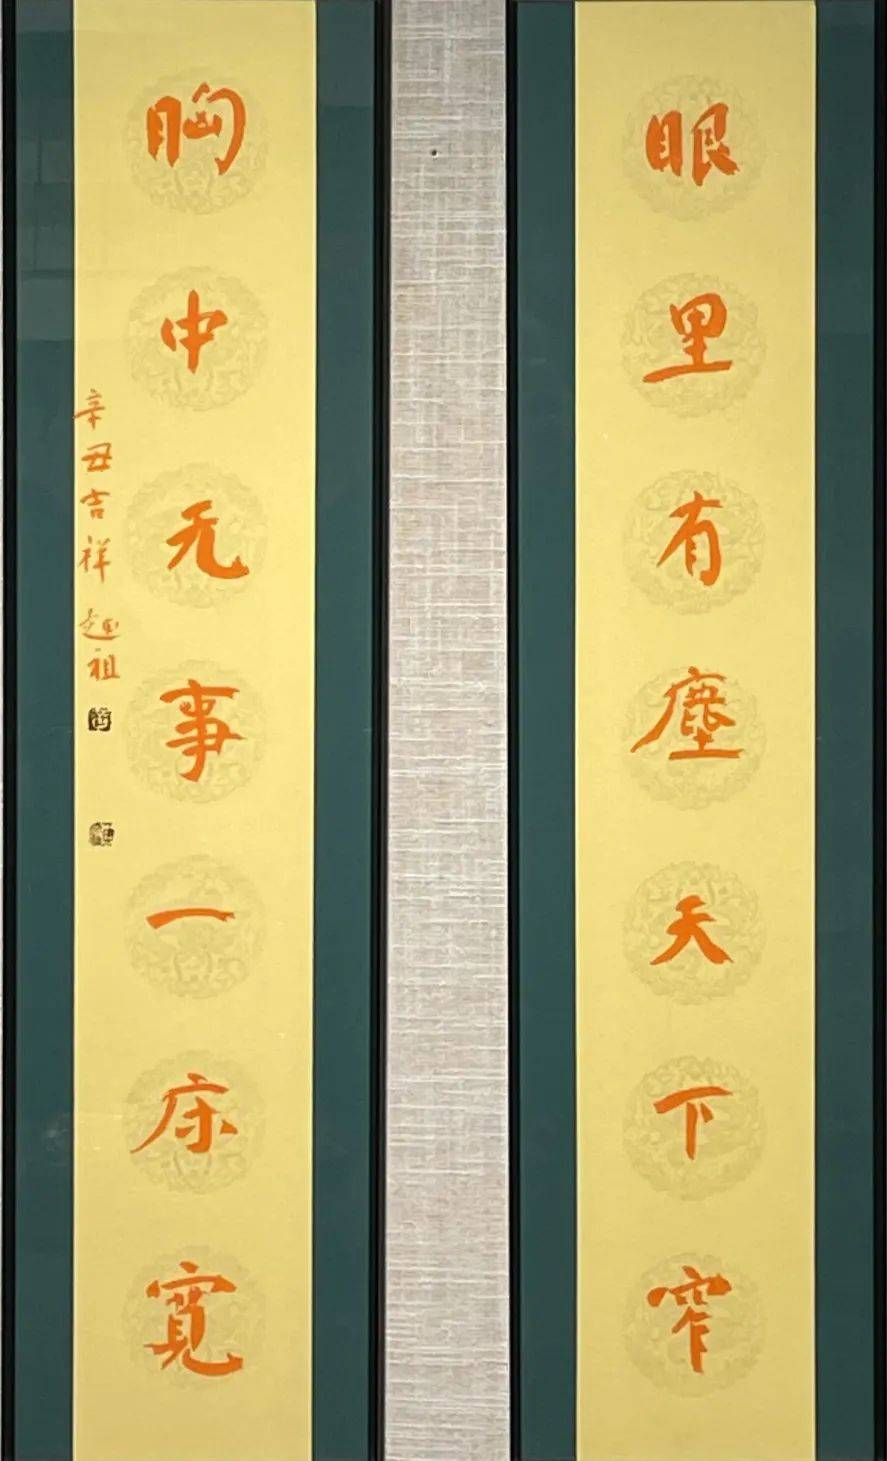 眼里有塵天下窄
胸中无事一床寬
辛丑吉祥 延祖